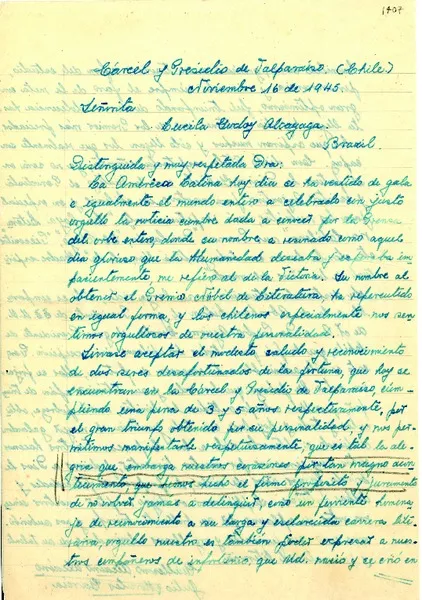 1707
Cárcel y Presidio de Valparaiso. (Chile)
Noviembre 16 de 1945
Señorita
Lucila Godoy Alcayaga.
Brazil
Distinguida y muy respetada Dra:
La America Latina hoy dia se ha vestido de gala
e igualmente el mundo entero a celebrado con justo
orgullo la noticia cumbre dada a conocer por la Prensa
del orbe entero, donde su nombre a resonado como aquel
dia glorioso que la Humanidad deseaba y esperaba im
pacientemente me refiero al de la Victoria. Su nombre al
obtener el Premio Nobel de Literatura, ha repercutido
en igual forma, y los chilenos especialmente nos sen
timos orgullosos de vuestra personalidad.
Sirvase aceptar el modesto saludo y reconocimiento
de dos seres desafortunados de la fortuna, que hoy se
encuentran en la Cárcel y Presidio de Valparaiso, cum
pliendo una pena de 3 y 5 años respectivamente, por
el gran triunfo obtenido por su personalidad y nos per
mitimos manifestarle respetuosamente, que es tal la ale
gria que embarga nuestros corazones por tan magno acon
tecimiento que hemos hecho el firme proposito y juramento
de no volver jamas a delinquir, como un ferviente homena
je de reconocimiento a su larga y esclarecida carrera lite
raria, orgullo nuestro es tambien poder expresar a nues
tros compañeros de infortunio, que Ud. nació y se crió en